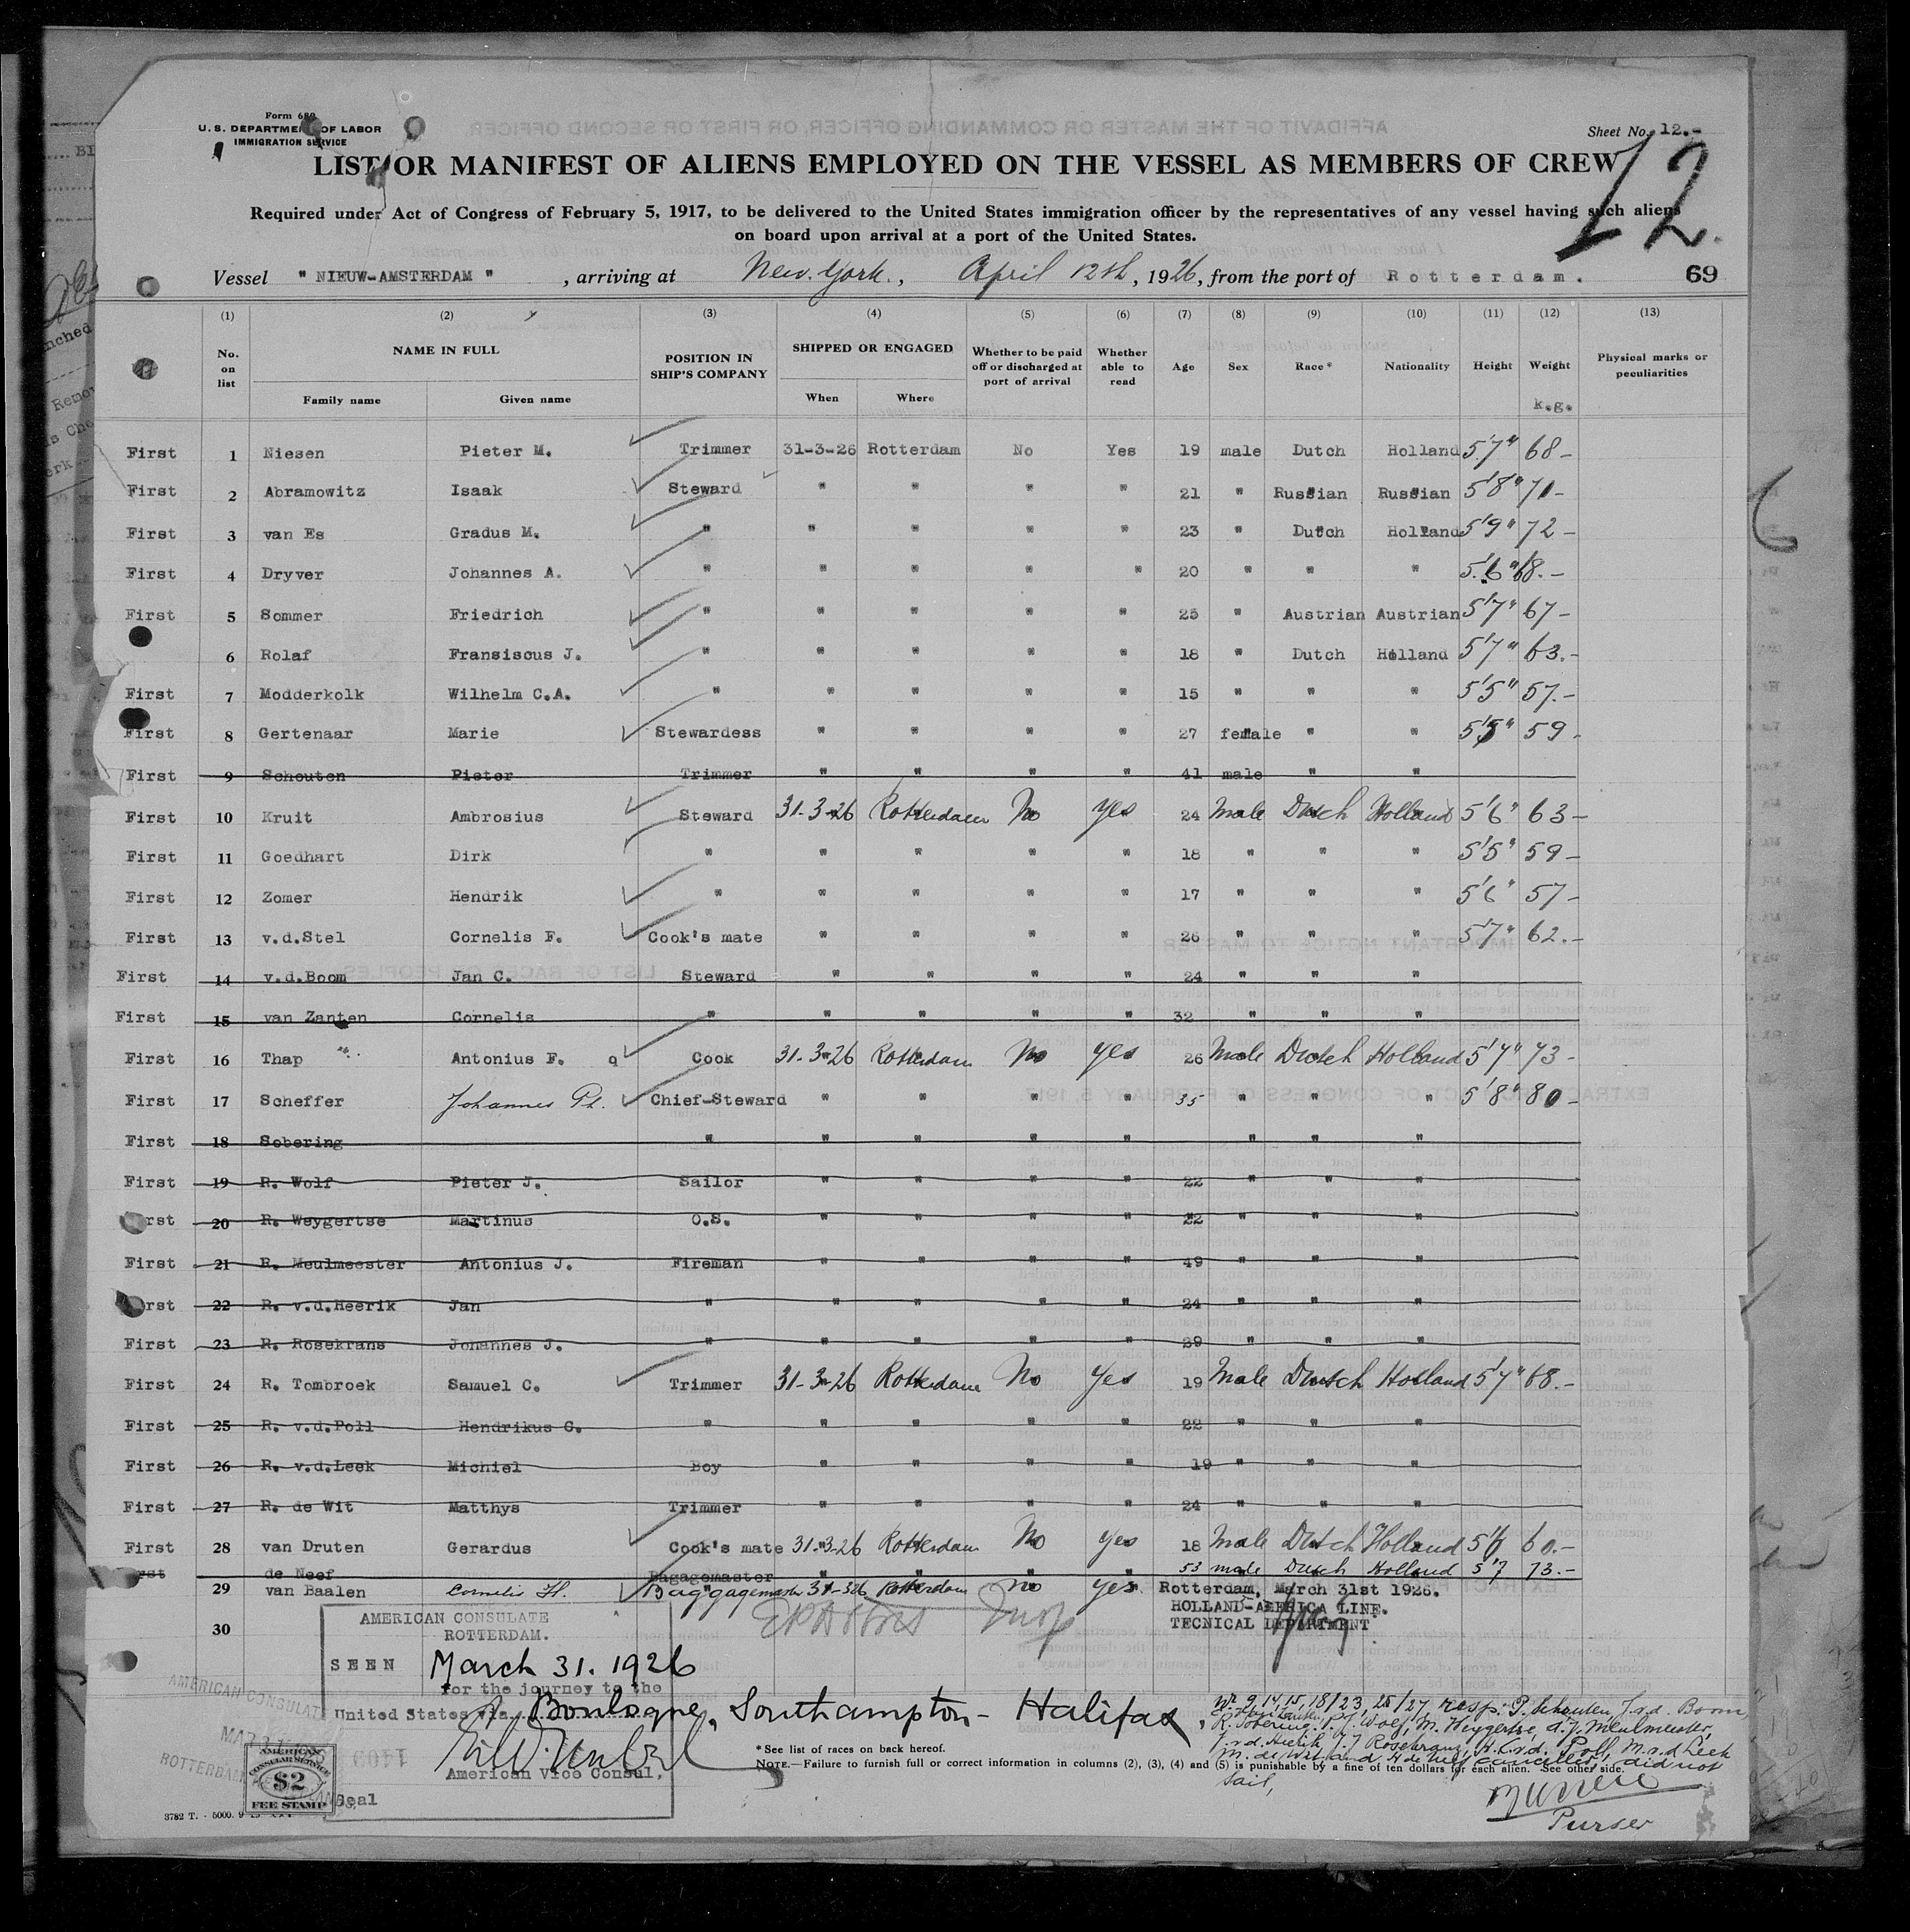 Form 689
U. S. DEPARTMENT OF LABOR
IMMIGRATION SERVICE
Sheet No. 12.-
LIST OR MANIFEST OF ALIENS EMPLOYED ON THE VESSEL AS MEMBERS OF CREW
12.
Required under Act of Congress of February 5, 1917, to be delivered to the United States immigration officer by the representatives of any vessel having such aliens
on board upon arrival at a port of the United States.
Vessel " NIEUW-AMSTERDAM " , arriving at New. York., April 12th, 1926, from the port of Rotterdam. 69
(1) (2) (3) (4) (5) (6) (7) (8) (9) (10) (11) (12) (13)
No. on list NAME IN FULL Family name Given name POSITION IN SHIP'S COMPANY SHIPPED OR ENGAGED When Where Whether to be paid off or discharged at port of arrival Whether able to read Age Sex Race* Nationality Height Weight k.g. Physical marks or peculiarities
First 1 Niesen Pieter M. Trimmer 31-3-26 Rotterdam No Yes 19 male Dutch Holland 5'7" 68-
First 2 Abramowitz Isaak Steward " " " " 21 " Russian Russian 5'8" 71-
First 3 van Es Gradus M. " " " " " 23 " Dutch Holland 5'9" 72-
First 4 Dryver Johannes A. " " " " " 20 " " " 5'6" 68.-
First 5 Sommer Friedrich " " " " " 25 " Austrian Austrian 5'7" 67-
6 Rolaf Fransiscus J. " " " " " 18 " Dutch Holland 5'7" 63.-
First 7 Modderkolk Wilhelm C.A. " " " " " 15 " " " 5'5" 57.-
First 8 Gertenaar Marie Stewardess " " " " 27 female " " 5'5" 59-
First 9 Schouten Pieter Trimmer " " " " 41 male " "
First 10 Kruit Ambrosius Steward 31-3-26 Rotterdam No yes 24 Male Dutch Holland 5'6" 63-
First 11 Goedhart Dirk " " " " " 18 " " " 5'5" 59-
First 12 Zomer Hendrik " " " " " 17 " " " 5'6" 57-
First 13 v.d.Stel Cornelis F. Cook's mate " " " " 26 " " " 5'7" 62.-
First 14 v.d.Boom Jan C. Steward " " " " 24 " " "
First 15 van Zanten Cornelis " " " " " 32 " " "
First 16 Thap Antonius F. q Cook 31-3-26 Rotterdam No yes 26 Male Dutch Holland 5'7" 73-
First 17 Scheffer Johannes Ph. Chief-Steward " " " " 35 " " " 5'8" 80-
First 18 Sobering " " " " " " " "
First 19 R. Wolf Pieter J. Sailor " " " " 22 " " "
First 20 R. Weygertse Martinus O.S. " " " " 22 " " "
First 21 R. Meulmeester Antonius J. Fireman " " " " 49 " " "
First 22 R. v.d.Heerik Jan " " " " " 24 " " "
First 23 R. Rosekrans Johannes J. " " " " " 29 " " "
First 24 R. Tombroek Samuel C. Trimmer 31-3-26 Rotterdam No yes 19 Male Dutch Holland 5'7" 68.-
First 25 R. v.d.Poll Hendrikus C. " " " " " 22 " " "
First 26 R. v.d.Leek Michiel Boy " " " " 19 " " "
First 27 R. de Wit Matthys Trimmer " " " " 24 " " "
First 28 van Druten Gerardus Cook's mate 31-3-26 Rotterdam No yes 18 Male Dutch Holland 60.-
First de Neef Bagagemaster " " " " 53 male Dutch Holland 5'7 73.-
29 van Baalen Cornelis H. Baggagemaster 31-3-26 Rotterdam no yes. Rotterdam, March 31st 1926.
HOLLAND-AMERICA LINE.
30 TECNICAL DEPARTMENT
AMERICAN CONSULATE
ROTTERDAM.
SEEN March 31. 1926
for the journey to the
United States via Boulogne, Southampton - Halifax,
American Vice Consul,
Seal
AMERICAN CONSULAR SERVICE
$2
FEE STAMP
Nr 9, 14, 15, 18/23, 25/27 resp: P. Schouten, J.v.d. Boom,
C. van Zanten, R. Sobering, P.J. Wolf, M. Weygertse, A.J. Meulmeester,
J.v.d. Heerik, J.J. Rosekranz, H.C.v.d. Poll, M.v.d Leek
M. de Wit and H de Neef cancelled, did not
sail,
*See list of races on back hereof.
NOTE.—Failure to furnish full or correct information in columns (2), (3), (4) and (5) is punishable by a fine of ten dollars for each alien. See other side.
Purser
3782 T. - 5000. 9